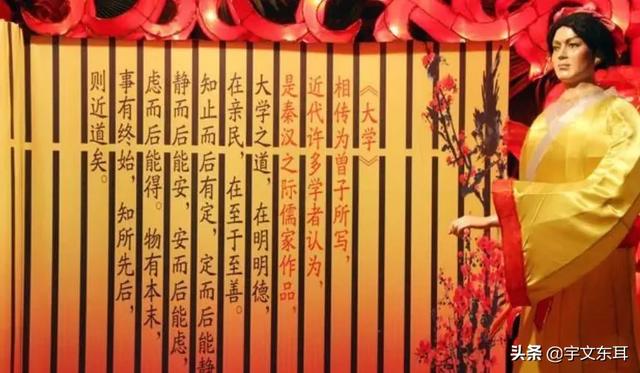 《大学》
相传为曾子所写，
近代许多学者认为，
是秦汉之际儒家作品，
大学之道，在明明德，
在亲民，在至于至善。
知止而后有定，定而后能静
静而后能安，安而后能虑，
虑而后能得。物有本末，
事有终始，知所先后，
则近道矣。
头条 @宇文东耳